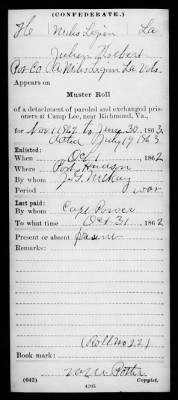 (CONFEDERATE.)
H Miles Legion La
Pvt Co A Miles Legion La Vols.
Appears on
Muster Roll
of a detachment of paroled and exchanged pris-
oners at Camp Lee, near Richmond, Va.,
for Nov 1 1862 to June 30, 1863.
dated July 19 1863
Enlisted:
When Oct 1, 1862
Where Port Hudson
By whom
Period war
Last paid:
By whom Capt Power
To what time Oct 31, 1862
Present or absent present
Remarks:
(Roll No 22)
Book mark:
(642) Copyist.